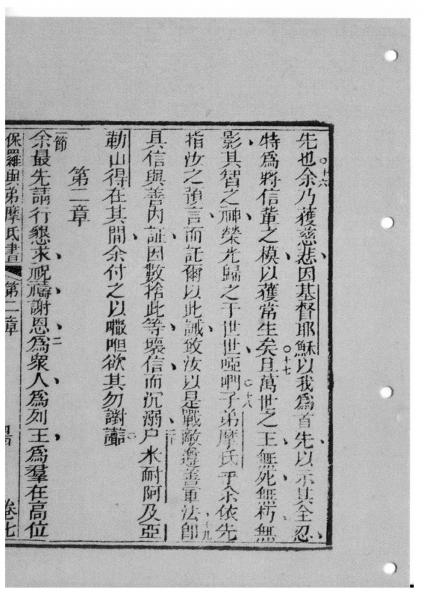 先也余乃獲慈悲因基督耶穌以我為首先以示其全忍
十六
特為將信輩之模以獲常生矣且萬世之王無死無朽無
十七
影其智之神榮光歸之于世世啞呵子弟摩氏乎余依先
十八
指汝之預言而託爾以此誡致汝以是戰敵遵善軍法即
十九
具信與善內証因數捨此等壞信而沉溺戶米耐阿及亞
二十
勒山得在其間余付之以㘔呾欲其勿謝
第二章
一節
余最先請行懇求祝禱謝恩為衆人為列王為羣在高位
二
保羅與弟摩氏書 第二章 卷七